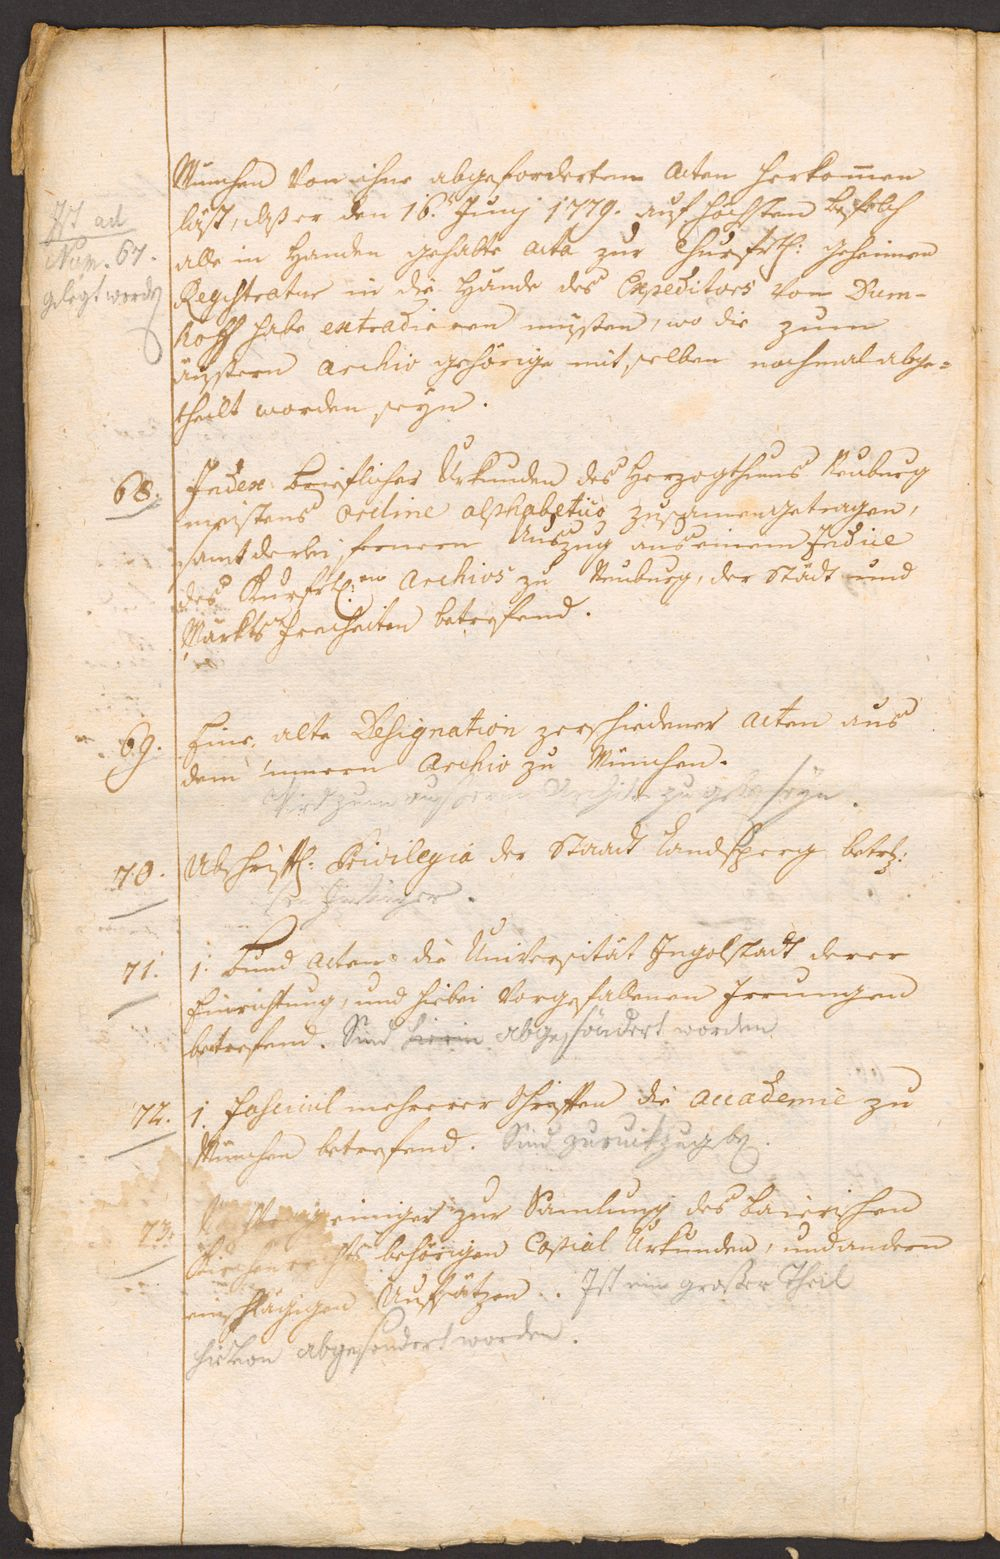 München von ihme abgeforderten Acten herkommen
läst, daß er den 16. Junij 1779. auf höchsten Befehl
alle in Handen gehabte Acta zur Churfrtl: geheimen
Registratur in die Hände des Expeditors von Dum-
hoff habe extradieren müssen, wo die zum
äussern Archiv gehörige mit selben nochmal abge=
theilt worden seyn.
Ist ad
Num. 67.
gelegt worden
68. Index brieflicher Urkunden des Herzogthums Neuburg
meistens ordine alphabetico zusamengetragen,
samt derlei fernern Auszug aus einem Indice
des Kurfrtl:en Archivs zu Neuburg, der Städt und
Märkts Freiheiten betrefend.
69. Eine alte Designation zerschiedener Acten aus
dem innern Archiv zu München.
Wird zum äussern Archiv seyn.
70. Abschriftl: Privilegia der Staadt Landsperg betrl:
71. 1. Bund Acten die Universität Ingolstadt derer
Einrichtung, und hiebei vorgefallenen Irrungen
betrefend. Sind hievon abgesöndert worden
72. 1. Fascicul mehrerer Schriften die Accademie zu
München betrefend. Sind
73. einiger zur Samlung des baierischen
Kirchenrechts behörigen Copial Urkunden, und andern
einschlägigen Aufsätzen. Ist ein grosser Theil
hievon abgesondert worden.